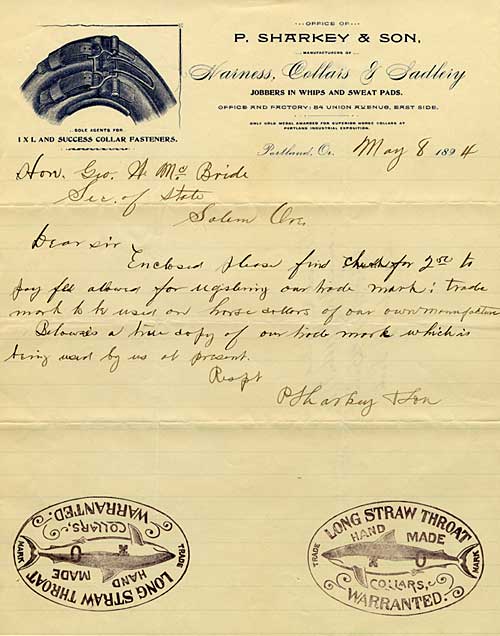 OFFICE OF
P. SHARKEY & SON,
MANUFACTURERS OF
Harness, Collars & Sadlery
JOBBERS IN WHIPS AND SWEAT PADS.
OFFICE AND FACTORY: 84 UNION AVENUE, EAST SIDE.
ONLY GOLD MEDAL AWARDED FOR SUPERIOR HORSE COLLARS AT
PORTLAND INDUSTRIAL EXPOSITION.
SOLE AGENTS FOR
I X L AND SUCCESS COLLAR FASTENERS.
Portland, Or. May 8 1894
Hon. Geo. W Mc Bride
Sec. of State
Salem Ore.
Dear sir
Enclosed please find check for 2.50 to
pay fee allowed for registering our trade mark; trade
mark to be used on horse collars of our own manufacture
Below is a true copy of our trade mark which is
being used by us at present.
Respt
P Sharkey & Son
LONG STRAW THROAT
HAND MADE
TRADE MARK
O X O
COLLARS,
WARRANTED.
LONG STRAW THROAT
HAND MADE
TRADE MARK
X O
COLLARS,
WARRANTED.